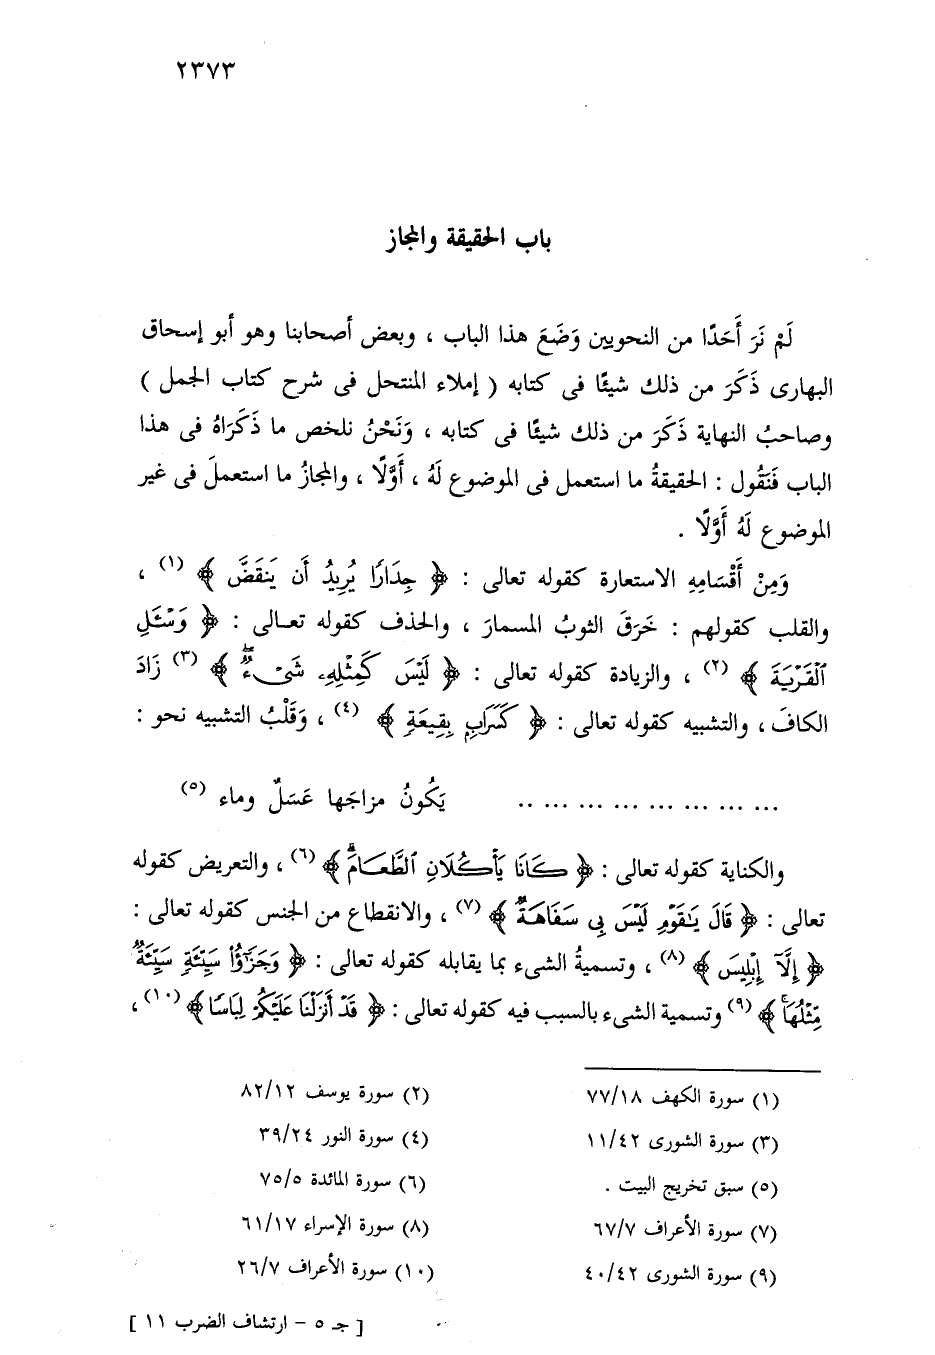 ٢٣٧٣
باب الحقيقة والمجاز
لَمْ نَرَ أَحَدًا من النحويين وَضَعَ هذا الباب ، وبعض أصحابنا وهو أبو إسحاق
البهارى ذَكَرَ من ذلك شيئًا فى كتابه ( إملاء المنتحل فى شرح كتاب الجمل )
وصاحبُ النهاية ذَكَرَ من ذلك شيئًا فى كتابه ، وَنَحْنُ نلخص ما ذَكَرَاهُ فى هذا
الباب فَنَقُول : الحقيقةُ ما استعمل فى الموضوع لَهُ ، أَوَّلًا ، والمجازُ ما استعملَ فى غير
الموضوع لَهُ أَوَّلًا .
وَمِنْ أَقْسَامِهِ الاستعارة كقوله تعالى : ﴿ جِدَارًا يُرِيدُ أَن يَنقَضَّ ﴾ (١) ،
والقلب كقولهم : خَرَقَ الثوبُ المسمارَ ، والحذف كقوله تعـالى : ﴿ وَسْـَٔلِ
ٱلْقَرْيَةَ ﴾ (٢) ، والزيادة كقوله تعالى : ﴿ لَيْسَ كَمِثْلِهِۦ شَىْءٌ ۖ ﴾ (٣) زَادَ
الكافَ ، والتشبيه كقوله تعالى : ﴿ كَسَرَابٍۭ بِقِيعَةٍ ﴾ (٤) ، وَقَلْبُ التشبيه نحو :
... ... ... ... ... ... ... .. يَكُونُ مزاجَها عَسَلٌ وماء (٥)
والكناية كقوله تعالى : ﴿ كَانَا يَأْكُلَانِ ٱلطَّعَامَ ۗ ﴾ (٦) ، والتعريض كقوله
تعالى : ﴿ قَالَ يَٰقَوْمِ لَيْسَ بِى سَفَاهَةٌ ﴾ (٧) ، والانقطاع من الجنس كقوله تعالى :
﴿ إِلَّآ إِبْلِيسَ ﴾ (٨) ، وتسميةُ الشىء بما يقابله كقوله تعالى : ﴿ وَجَزَٰٓؤُا۟ سَيِّئَةٍ سَيِّئَةٌ
مِّثْلُهَا ۖ ﴾ (٩) وتسمية الشىء بالسبب فيه كقوله تعالى : ﴿ قَدْ أَنزَلْنَا عَلَيْكُمْ لِبَاسًا ﴾ (١٠) ،
(١) سورة الكهف ٧٧/١٨ (٢) سورة يوسف ٨٢/١٢
(٣) سورة الشورى ١١/٤٢ (٤) سورة النور ٣٩/٢٤
(٥) سبق تخريج البيت . (٦) سورة المائدة ٧٥/٥
(٧) سورة الأعراف ٦٧/٧ (٨) سورة الإسراء ٦١/١٧
(٩) سورة الشورى ٤٠/٤٢ (١٠) سورة الأعراف ٢٦/٧
[ جـ ٥ - ارتشاف الضرب ١١ ]